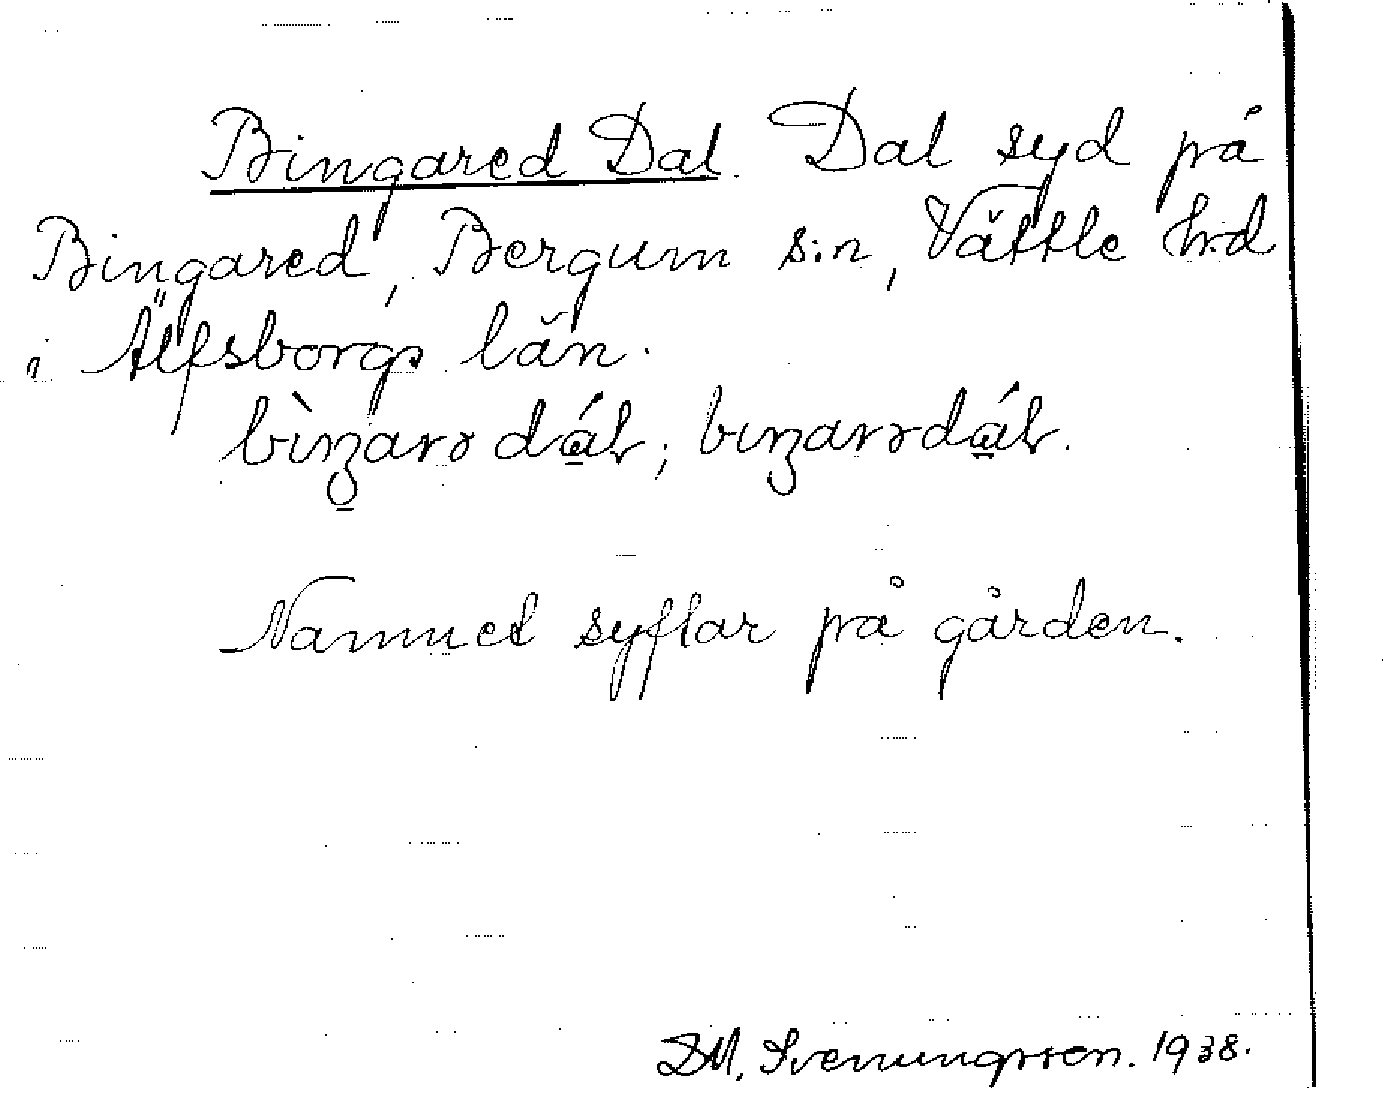 Bingared Dal. Dal syd på
Bingared, Bergum s:n, Vättle h:d
i Älfsborgs län.
bìnarə dál; binarədál.
Namnet syftar på gården.
DM. Svenungsson. 1938.